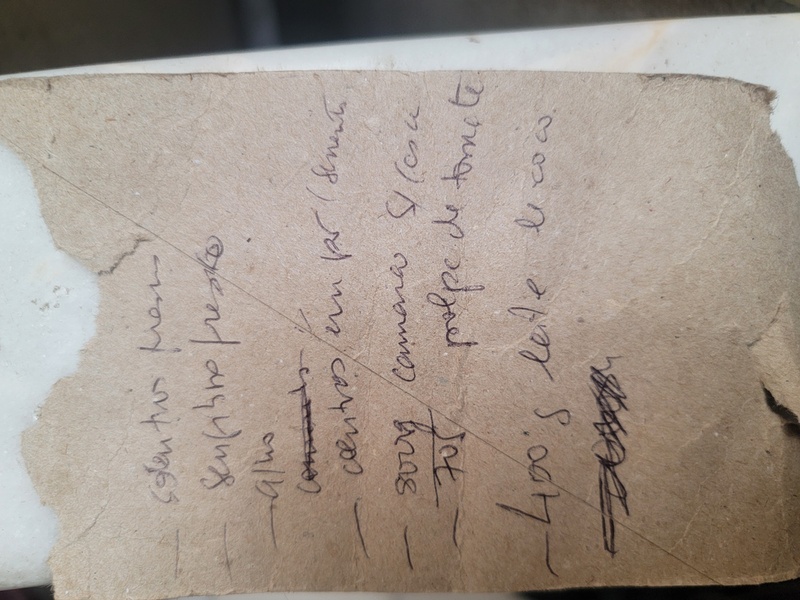 - coentros frescos
- gengibre fresco
- alho
- coentros em pó / semente
- 800g camarão s/ casca
- 705 polpa de tomate
- 400g leite de coco